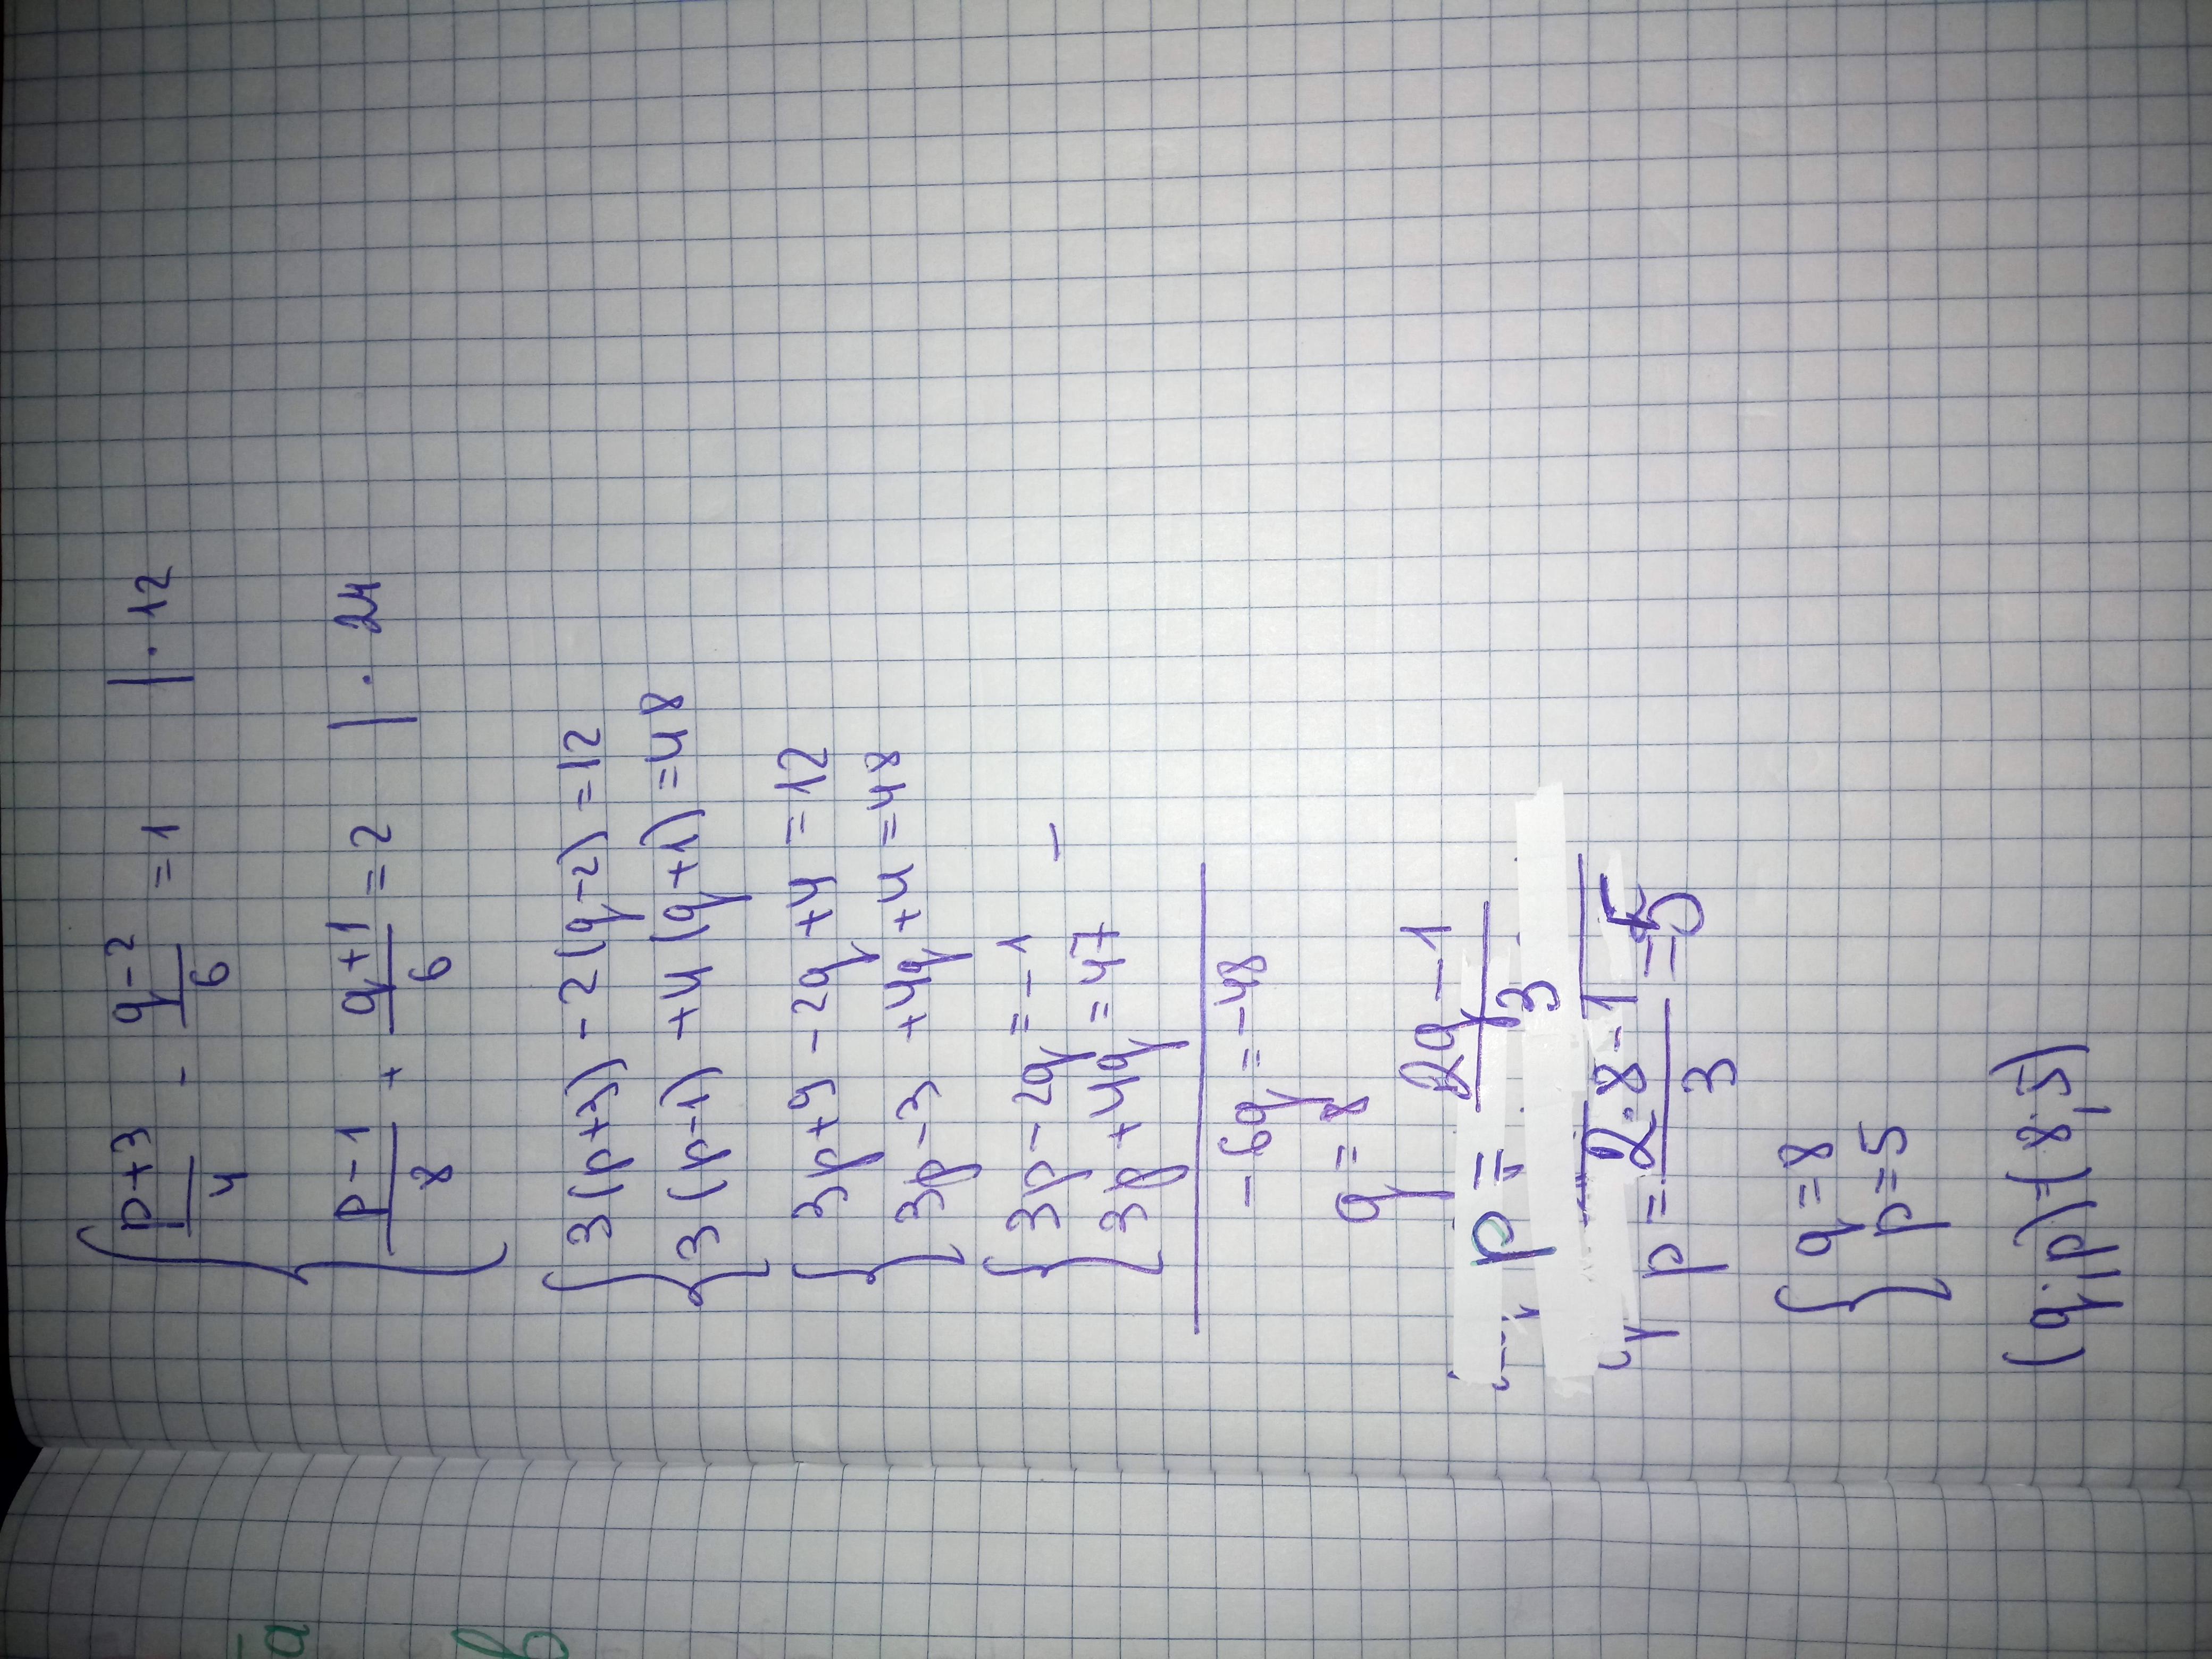 { (p+3)/4 - (q-2)/6 = 1 | · 12
(p-1)/8 + (q+1)/6 = 2 | · 24
{ 3(p+3) - 2(q-2) = 12
3(p-1) + 4(q+1) = 48
{ 3p+9 - 2q +4 = 12
3p-3 +4q +4 = 48
{ 3p - 2q = -1 -
3p + 4q = 47
- 6q = -48
q = 8
p = (2q - 1)/3
p = (2·8-1)/3 = 5
{ q = 8
p = 5
(q;p)=(8;5)
a
b